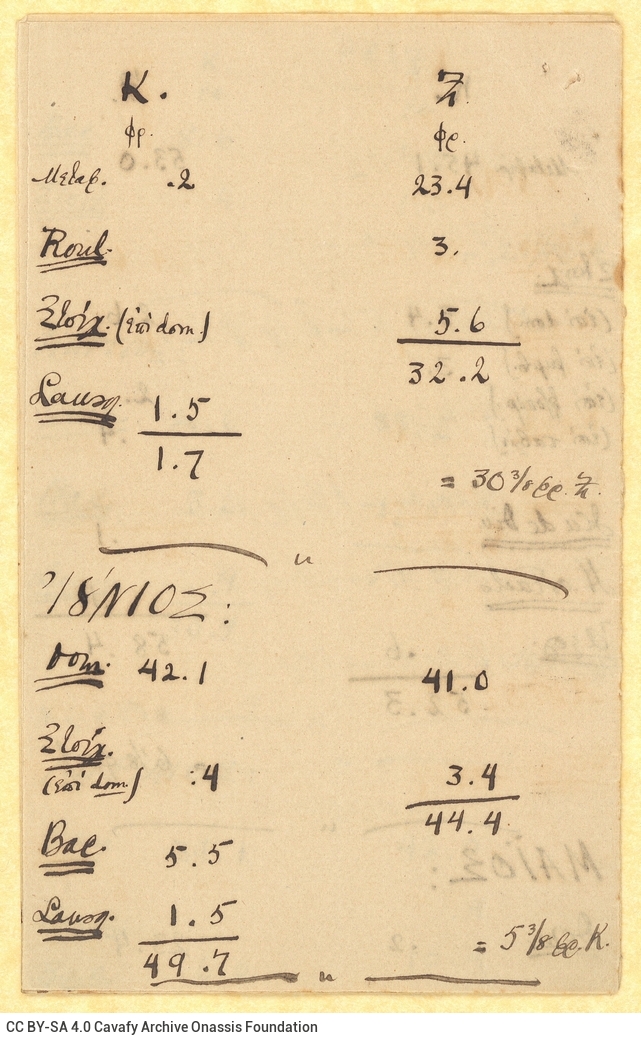 Κ. Ζ
φρ. φρ.
Μεταφ. .2 23.4
Roul. 3.
Στοίχ. (ἐπὶ dom.) 5.6
32.2
Lansq. 1.5
1.7
= 30 3/8 Ζ.
"
ἸȢ́ΝΙΟΣ:
Dom. 42.1 41.0
Στοίχ.
(ἐπὶ dom.) .4 3.4
44.4
Bac. 5.5
Lansq. 1.5
49.7 = 5 3/8 Κ.
"
CC BY-SA 4.0 Cavafy Archive Onassis Foundation